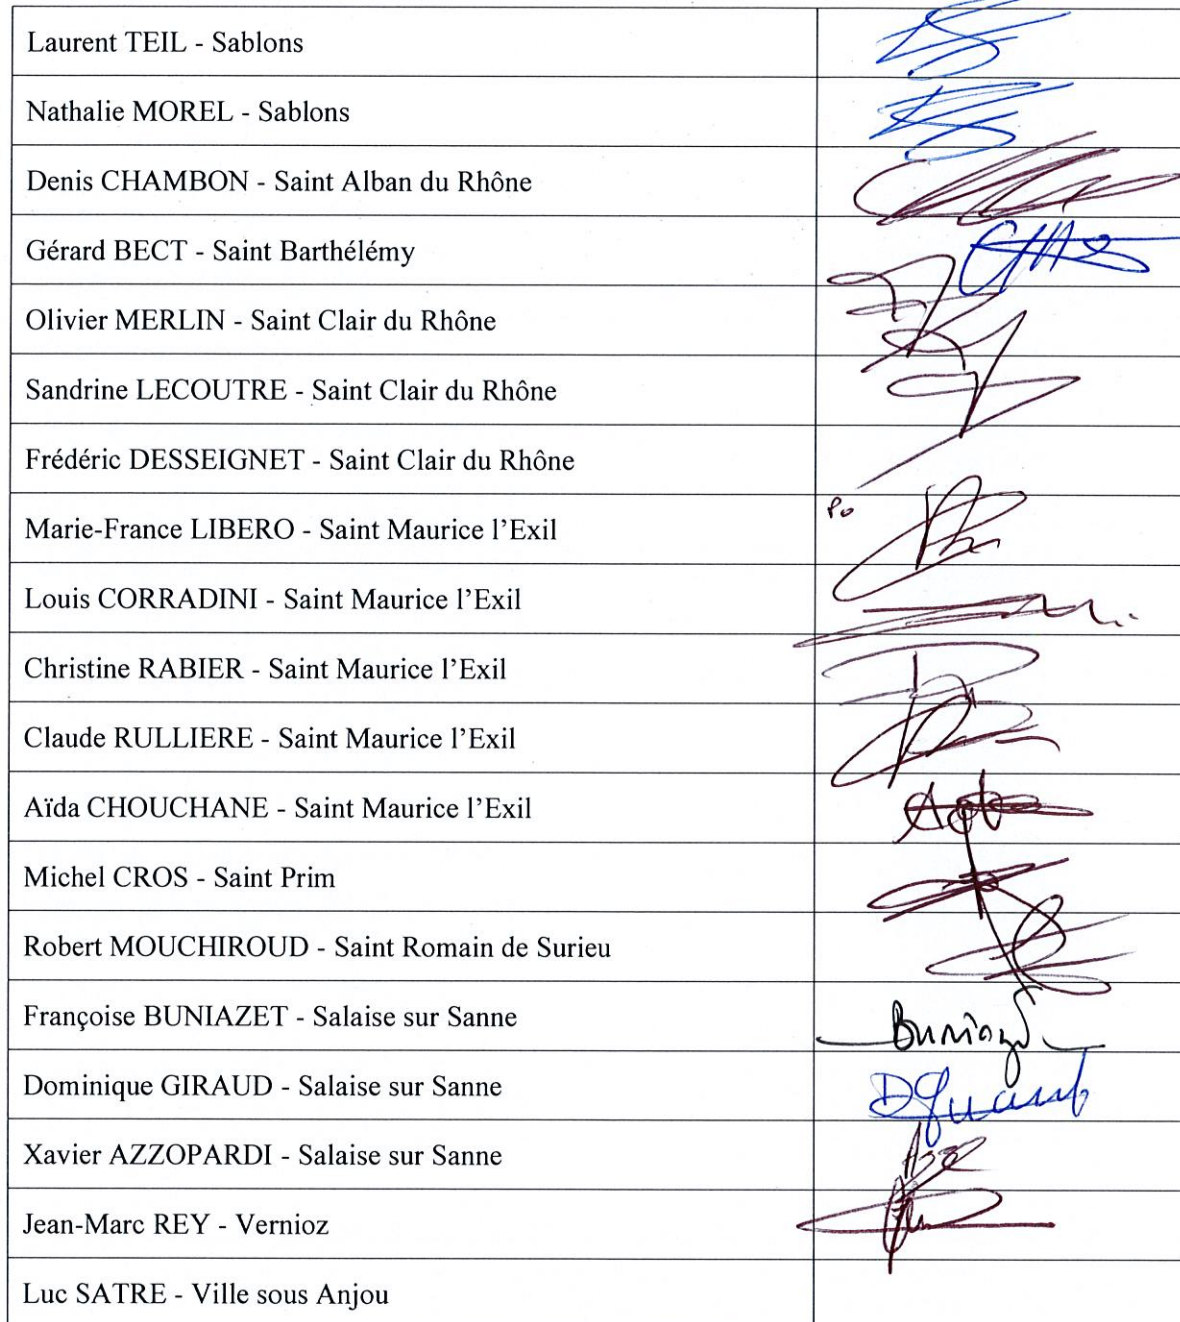 Laurent TEIL - Sablons
Nathalie MOREL - Sablons
Denis CHAMBON - Saint Alban du Rhône
Gérard BECT - Saint Barthélémy
Olivier MERLIN - Saint Clair du Rhône
Sandrine LECOUTRE - Saint Clair du Rhône
Frédéric DESSEIGNET - Saint Clair du Rhône
Po
Marie-France LIBERO - Saint Maurice l'Exil
Louis CORRADINI - Saint Maurice l'Exil
Christine RABIER - Saint Maurice l'Exil
Claude RULLIERE - Saint Maurice l'Exil
Aïda CHOUCHANE - Saint Maurice l'Exil
Michel CROS - Saint Prim
Robert MOUCHIROUD - Saint Romain de Surieu
Françoise BUNIAZET - Salaise sur Sanne
Dominique GIRAUD - Salaise sur Sanne
Xavier AZZOPARDI - Salaise sur Sanne
Jean-Marc REY - Vernioz
Luc SATRE - Ville sous Anjou